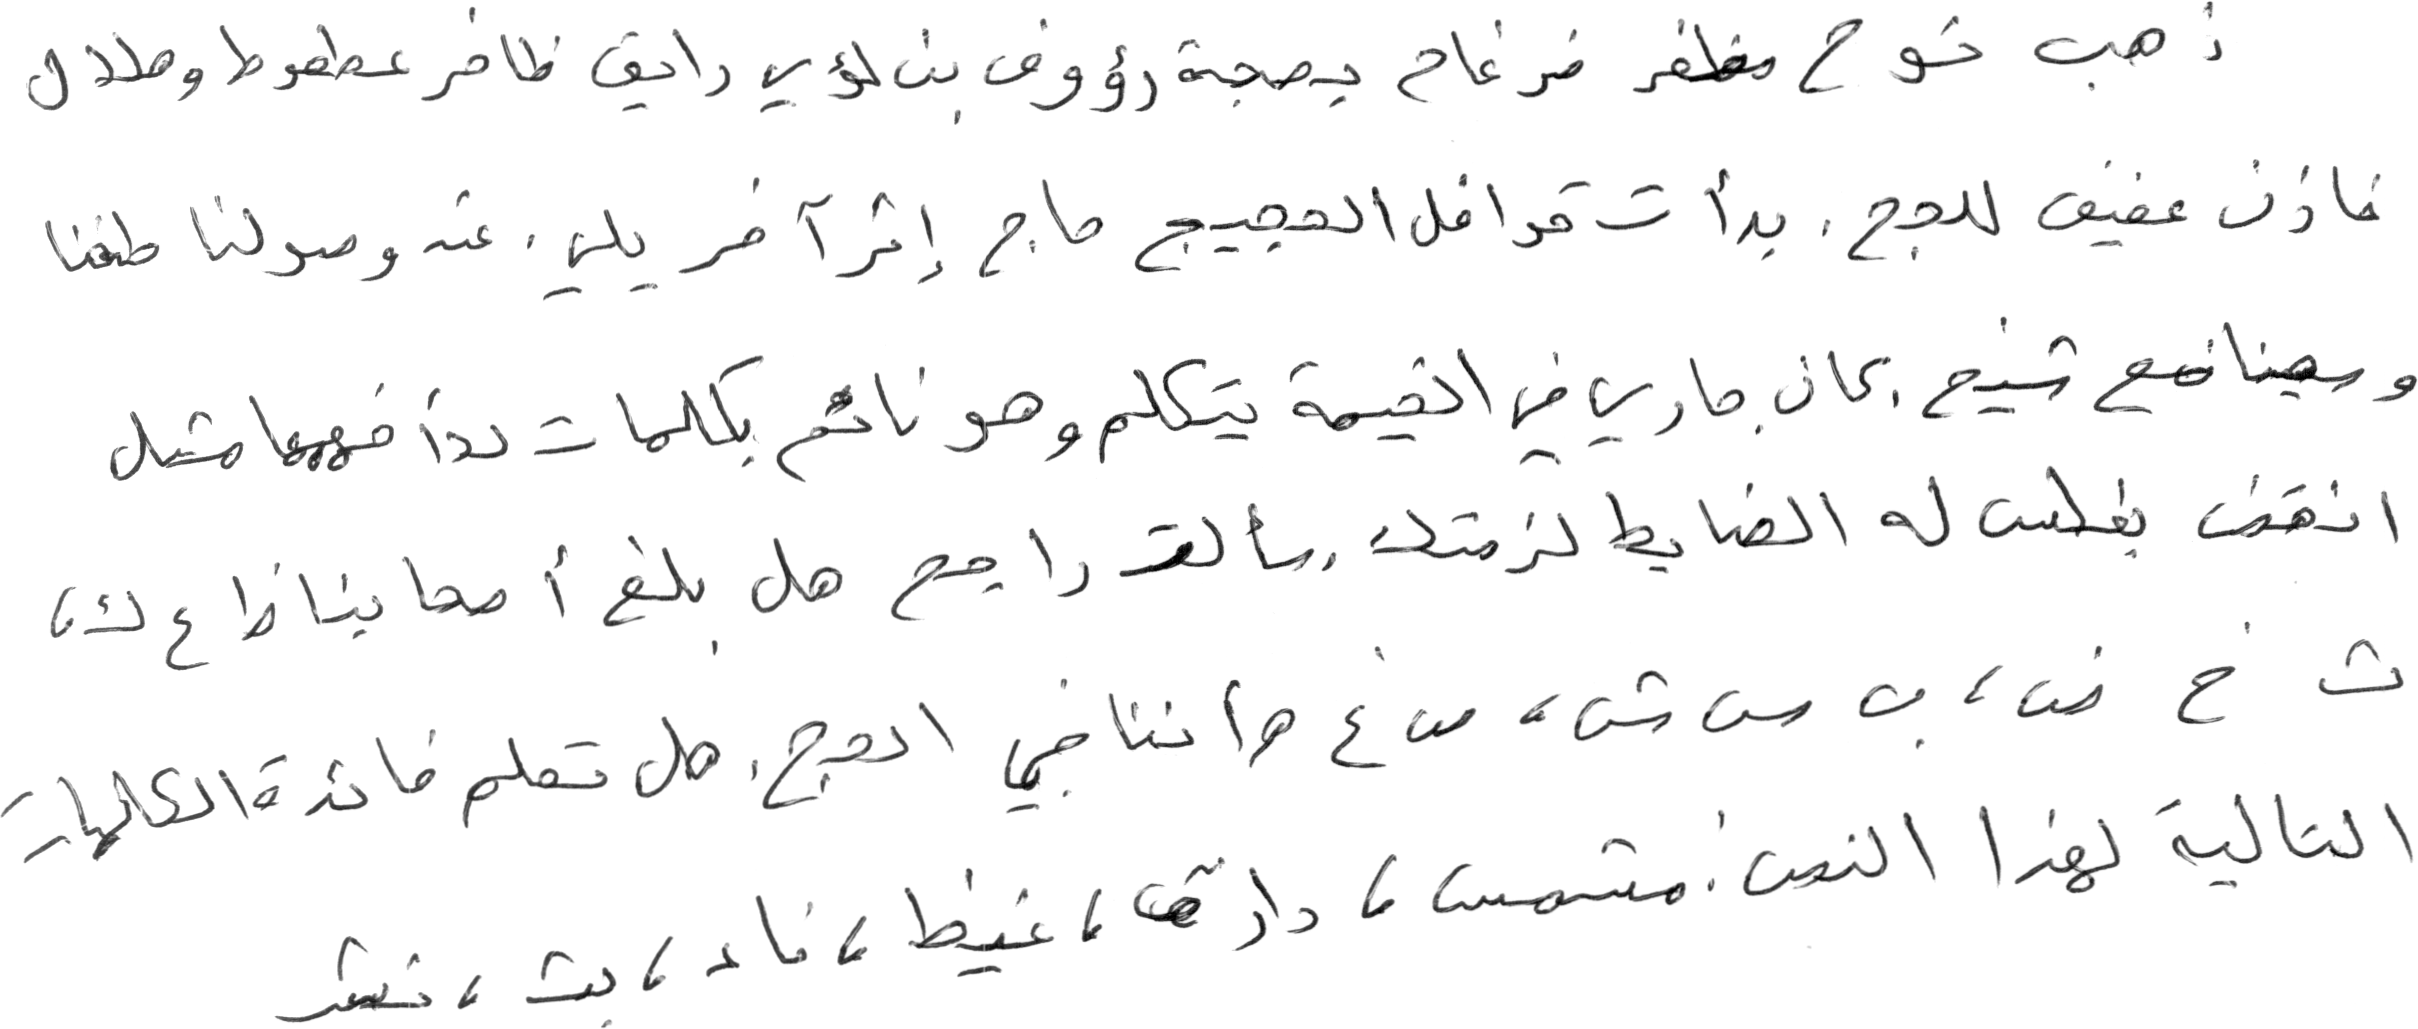 ذهب نوح مظفر ضرغام بصحبة رؤوف بن لؤي رايق ظافر عطعوط وهلال
فاذن عفيف للحج. بدأت قوافل الحجيج حاج إثر آخر يلبي. عند وصولنا طفنا
وسعينا مع شيخ. كان جاري في الخيمة يتكلم وهو نائم بكلمات لا أفهمها مثل
انقض بغطس له الضابط لزمتك. سألت راجح هل بلغ أصحابنا ظ ا ع ك،
ث خ ض، ب س ش، ص غ ه أننا في الحج. هل تعلم فائدة الكلمات
التالية لهذا النص: مشمس، دارق، غيظ، ناد، بث،